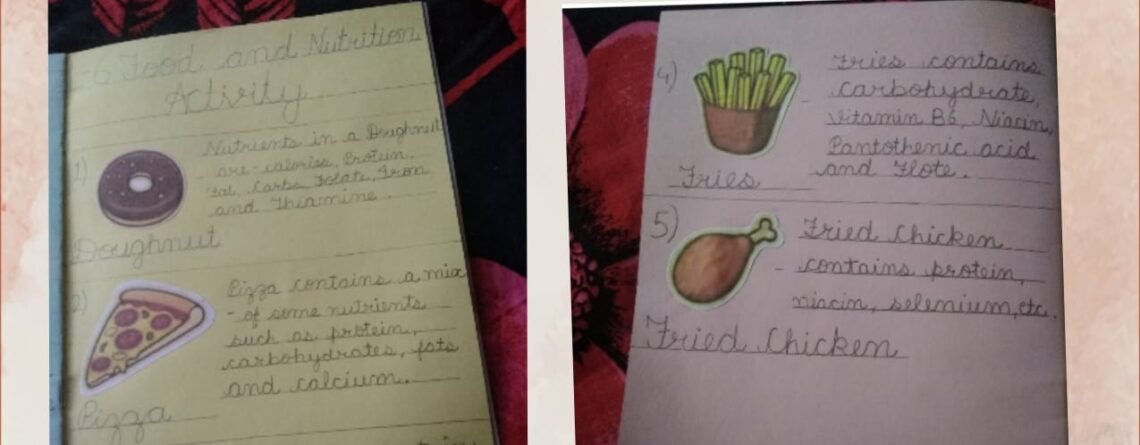 -6 Food and Nutrition
Activity
1)
Nutrients in a Doughnut
- are - calories, Protein,
Fat, Carbs, Folate, Iron
and Thiamine.
Doughnut
2)
Pizza contains a mix
- of some nutrients
such as protein,
carbohydrates, fats
and calcium.
Pizza
4)
Fries contains
- carbohydrate,
vitamin B6, Niacin,
Pantothenic acid
and Flote.
Fries
5)
Fried Chicken
- contains protein,
niacin, selenium, etc.
Fried Chicken